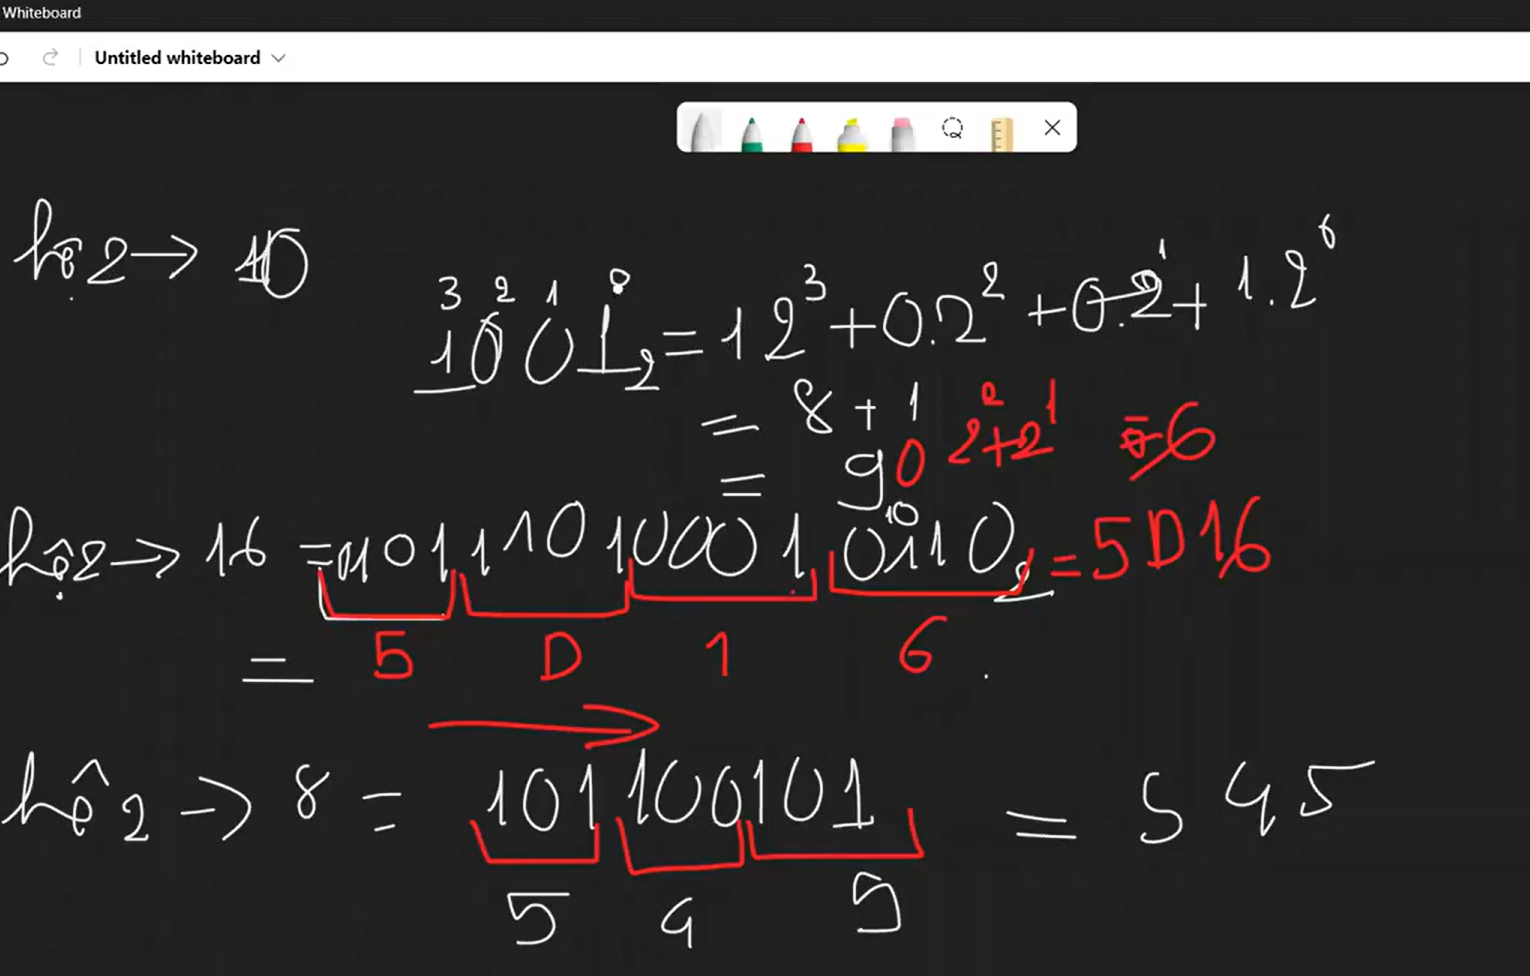 Whiteboard
Untitled whiteboard
hệ 2 → 10
3 2 1 0
1001₂ = 1 2³ + 0.2² + 0.2¹ + 1.2⁰
= 8 + 1
= 9 0 2² + 2¹ = 6
10
hệ 2 → 16 = 101 1101 0001 0110₂ = 5D16
= 5 D 1 6
hệ 2 → 8 = 101 100 101 = 5 4 5
5 4 5